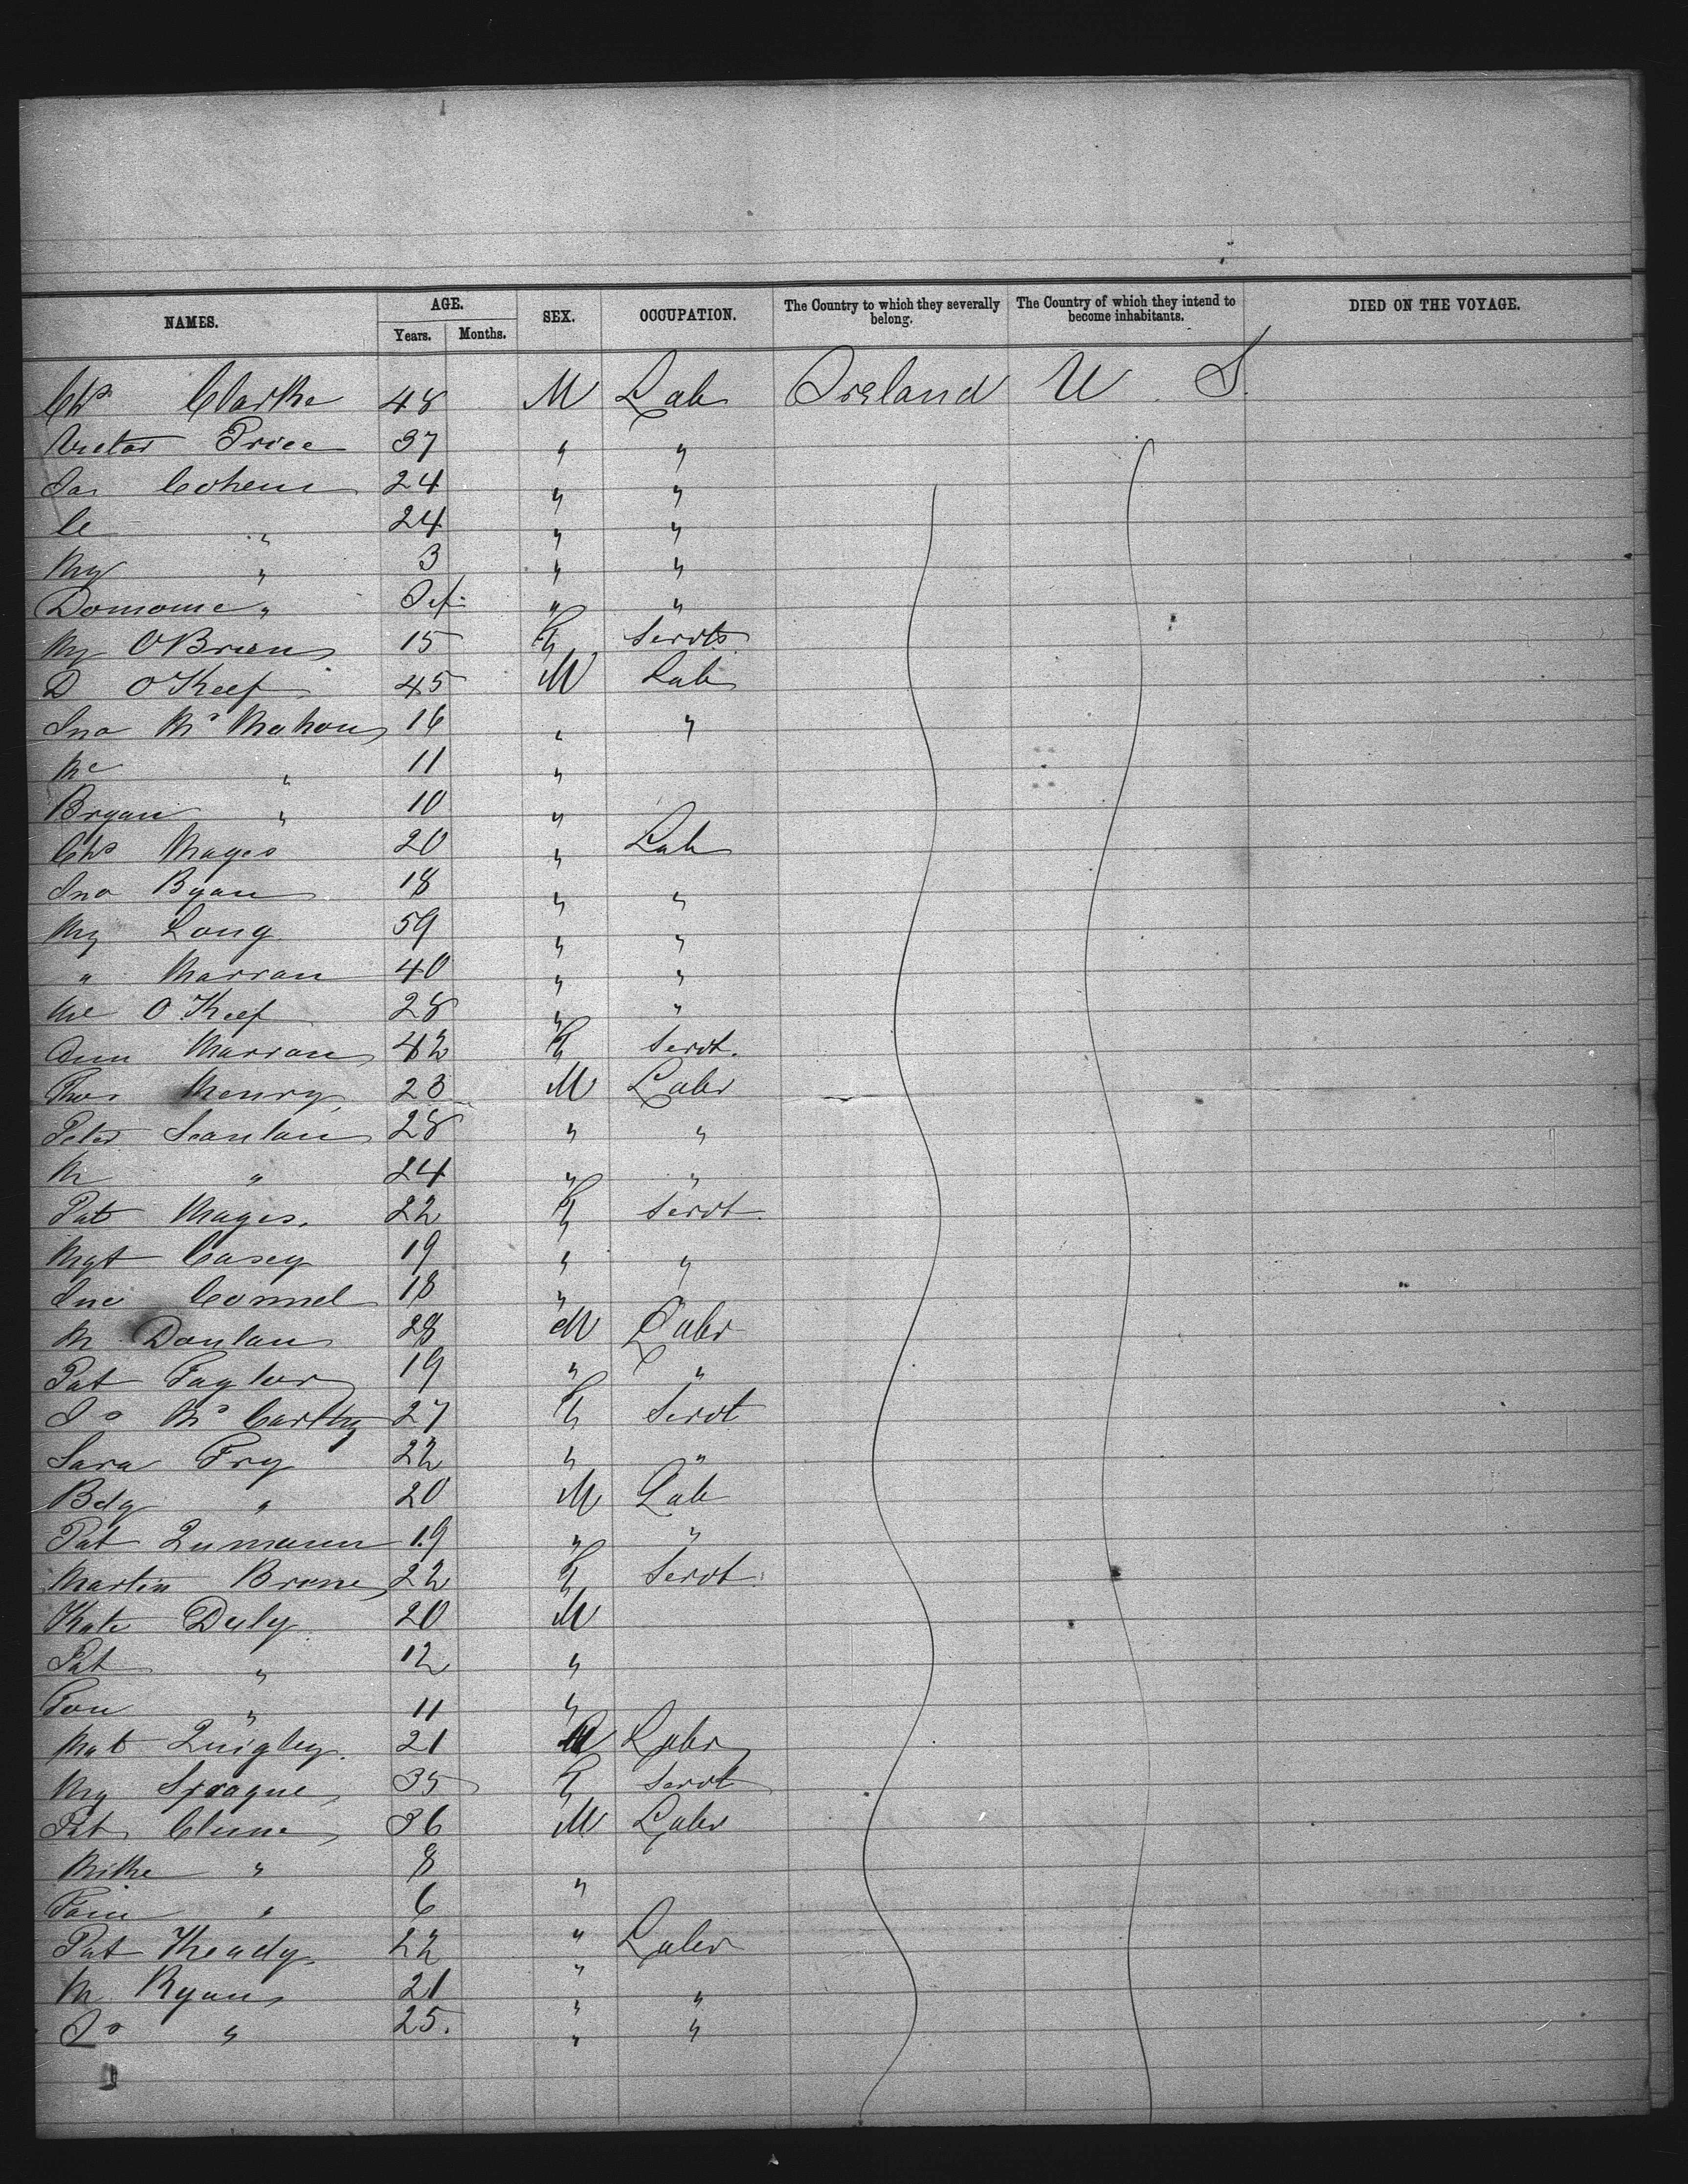 NAMES. AGE. SEX. OCCUPATION. The Country to which they severally belong. The Country of which they intend to become inhabitants. DIED ON THE VOYAGE.
Years. Months.
Chs Clarke 48 M Lab Ireland U S.
Victor Price 37 " "
Jas Cohen 24 " "
" 24 " "
My " 3 " "
" Inf " "
My O'Brien 15 F Servts
D O'Keef 45 M Lab
Jno Mc Mahon 16 " "
Mc " 11 "
Bryan " 10 "
Chs Mayes 20 " Lab
Jno Byan 18 " "
My Long 59 " "
" Marran 40 " "
O'Keef 28 " "
Ann Marran 42 F Servt.
Thos Henry 23 M Labr
Peter Scanlan 28 " "
M " 24 " "
Pat Mayes. 22 F Servt.
Mgt Casey 19 " "
Connel 18 " "
M Donlan 28 M Labr
Pat Taylor 19 " "
Jo Mc Carthy 27 F Servt
Sara Fry 22 " "
Bdg " 20 M Lab
Pat 19 " "
Martin 22 F Servt.
Kate Duly 20 M
Pat " 12 "
" 11 "
Mat Quigley. 21 M Labr
My Sprague 35 F Servt
Pat Clune 36 M Labr
Mike " 8 "
" 6 "
Pat Keady 22 " Labr
M Ryan 21 " "
Jo " 25. " "